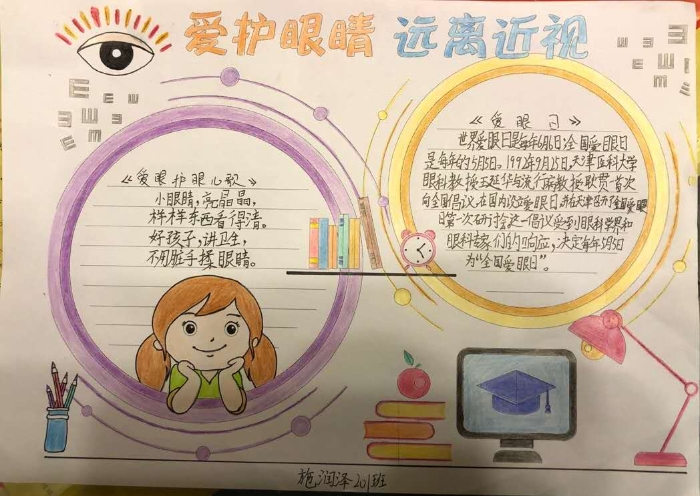 爱护眼睛 远离近视
《爱眼护眼儿歌》
小眼睛,亮晶晶,
样样东西看得清。
好孩子,讲卫生,
不用脏手揉眼睛。
《爱眼日》
世界爱眼日是每年6月6日,全国爱眼日
是每年的5月5日。1992年9月25日,天津医科大学
眼科教授王延华与流行病教授耿贯一首次
向全国倡议,在国内设爱眼日,并在天津召开了全国爱眼
日第一次研讨会,这一倡议受到眼科学界和
眼科专家们的响应,决定每年5月5日
为“全国爱眼日”。
施润泽201班